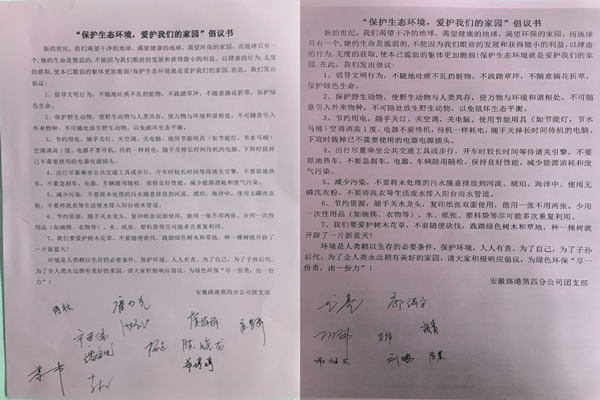 “保护生态环境，爱护我们的家园”倡议书
新的世纪，我们渴望干净的地球，渴望健康的地球，渴望环保的家园，而地球只有
一个，她的生命是脆弱的，不能因为我们眼前的发展和获得微小的利益，以肆虐的行为，无度
的获取，使本已脆弱的躯体更加脆弱！保护生态环境就是爱护我们的家园，在此，我们发出
倡议：
1、倡导文明行为，不随地吐痰不乱扔脏物，不践踏草坪，不随意摘花折草，保护绿
色生命。
2、保护野生动物，使野生动物与人类共存，使万物与环境和谐相处，不可随
意引入外来物种，不可随处放生野生动物，以免破坏生态平衡。
3、节约用电，随手关灯、关空调、关电脑，使用节能用具（如节能灯，节水
马桶）空调调高1度。电器不要待机，待机一样耗电，随手关掉长时待机的电脑，下班时拔掉已
不需要使用的电器电源插头。
4、出行尽量乘坐公共交通工具或步行，开车时较长时间等待请关引擎，不要
原地热车，不要急刹车。电器、车辆随用随检，保持良好性能，减少能源消耗和废气污染。
5、减少污染，不要将未处理的污水随意排放到河流、琥珀、海洋中，使用无磷洗
衣粉，不要将洗衣等生活废水排入阳台雨水管道。
6、节约资源，随手关水龙头，复印纸张双面使用，能用一张不用两张，少用一次性的
用品（如碗筷、衣物等），水、纸张、塑料袋等尽可能多次重复利用。
7、我们要爱护树木花草，不要随便砍伐，践踏绿色树木和草地，种一棵树就开
辟了一片新蓝天！
环境是人类赖以生存的必要条件，保护环境，人人有责，为了自己，为了子孙后代，
为了全人类永远拥有美好的家园，请大家积极响应倡议，为绿色环保“尽一份责，出一份
力”！
安徽路港第四分公司团支部
“保护生态环境，爱护我们的家园”倡议书
新的世纪，我们渴望干净的地球，渴望健康的地球，渴望环保的家园，而地球
只有一个，她的生命是脆弱的，不能因为我们眼前的发展和获得微小的利益，以肆虐
的行为，无度的获取，使本已脆弱的躯体更加脆弱！保护生态环境就是爱护我们的
家园，在此，我们发出倡议：
1、倡导文明行为，不随地吐痰不乱扔脏物，不践踏草坪，不随意摘花折草，
保护绿色生命。
2、保护野生动物，使野生动物与人类共存，使万物与环境和谐相处，不可随
意引入外来物种，不可随处放生野生动物，以免破坏生态平衡
3、节约用电，随手关灯、关空调、关电脑，使用节能用具（如节能灯，节水
马桶）空调调高1度。电器不要待机，待机一样耗电，随手关掉长时待机的电脑，
下班时拔掉已不需要使用的电器电源插头。
4、出行尽量乘坐公共交通工具或步行，开车时较长时间等待请关引擎，不要
原地热车，不要急刹车。电器、车辆随用随检，保持良好性能，减少能源消耗和废
气污染。
5、减少污染，不要将未处理的污水随意排放到河流、琥珀、海洋中，使用无
磷洗衣粉，不要将洗衣等生活废水排入阳台雨水管道。
6、节约资源，随手关水龙头，复印纸张双面使用，能用一张不用两张，少用一
次性用品（如碗筷、衣物等）、水、纸张、塑料袋等尽可能多次重复利用。
7、我们要爱护树木花草，不要随便砍伐，践踏绿色树木和草地，种一棵树就
开辟了一片新蓝天！
环境是人类赖以生存的必要条件，保护环境，人人有责，为了自己，为了子孙
后代，为了全人类永远拥有美好的家园，请大家积极响应倡议，为绿色环保“尽一
份责，出一份力”！
安徽路港第四分公司团支部